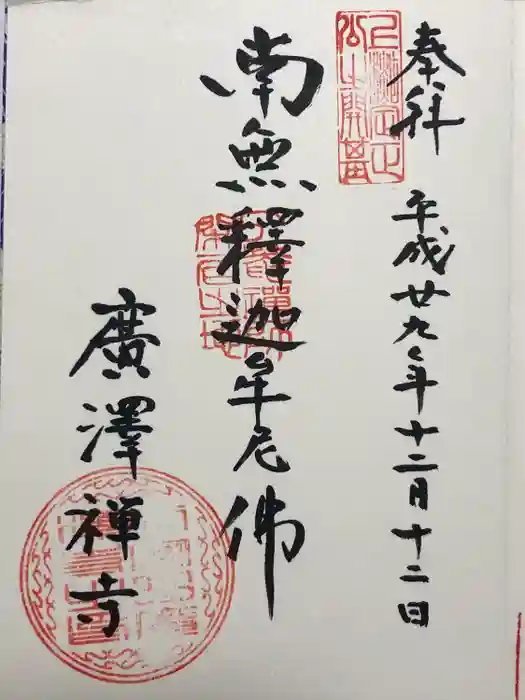 奉拜
平成廿九年十二月十二日
南無釋迦牟尼佛
廣澤禅寺